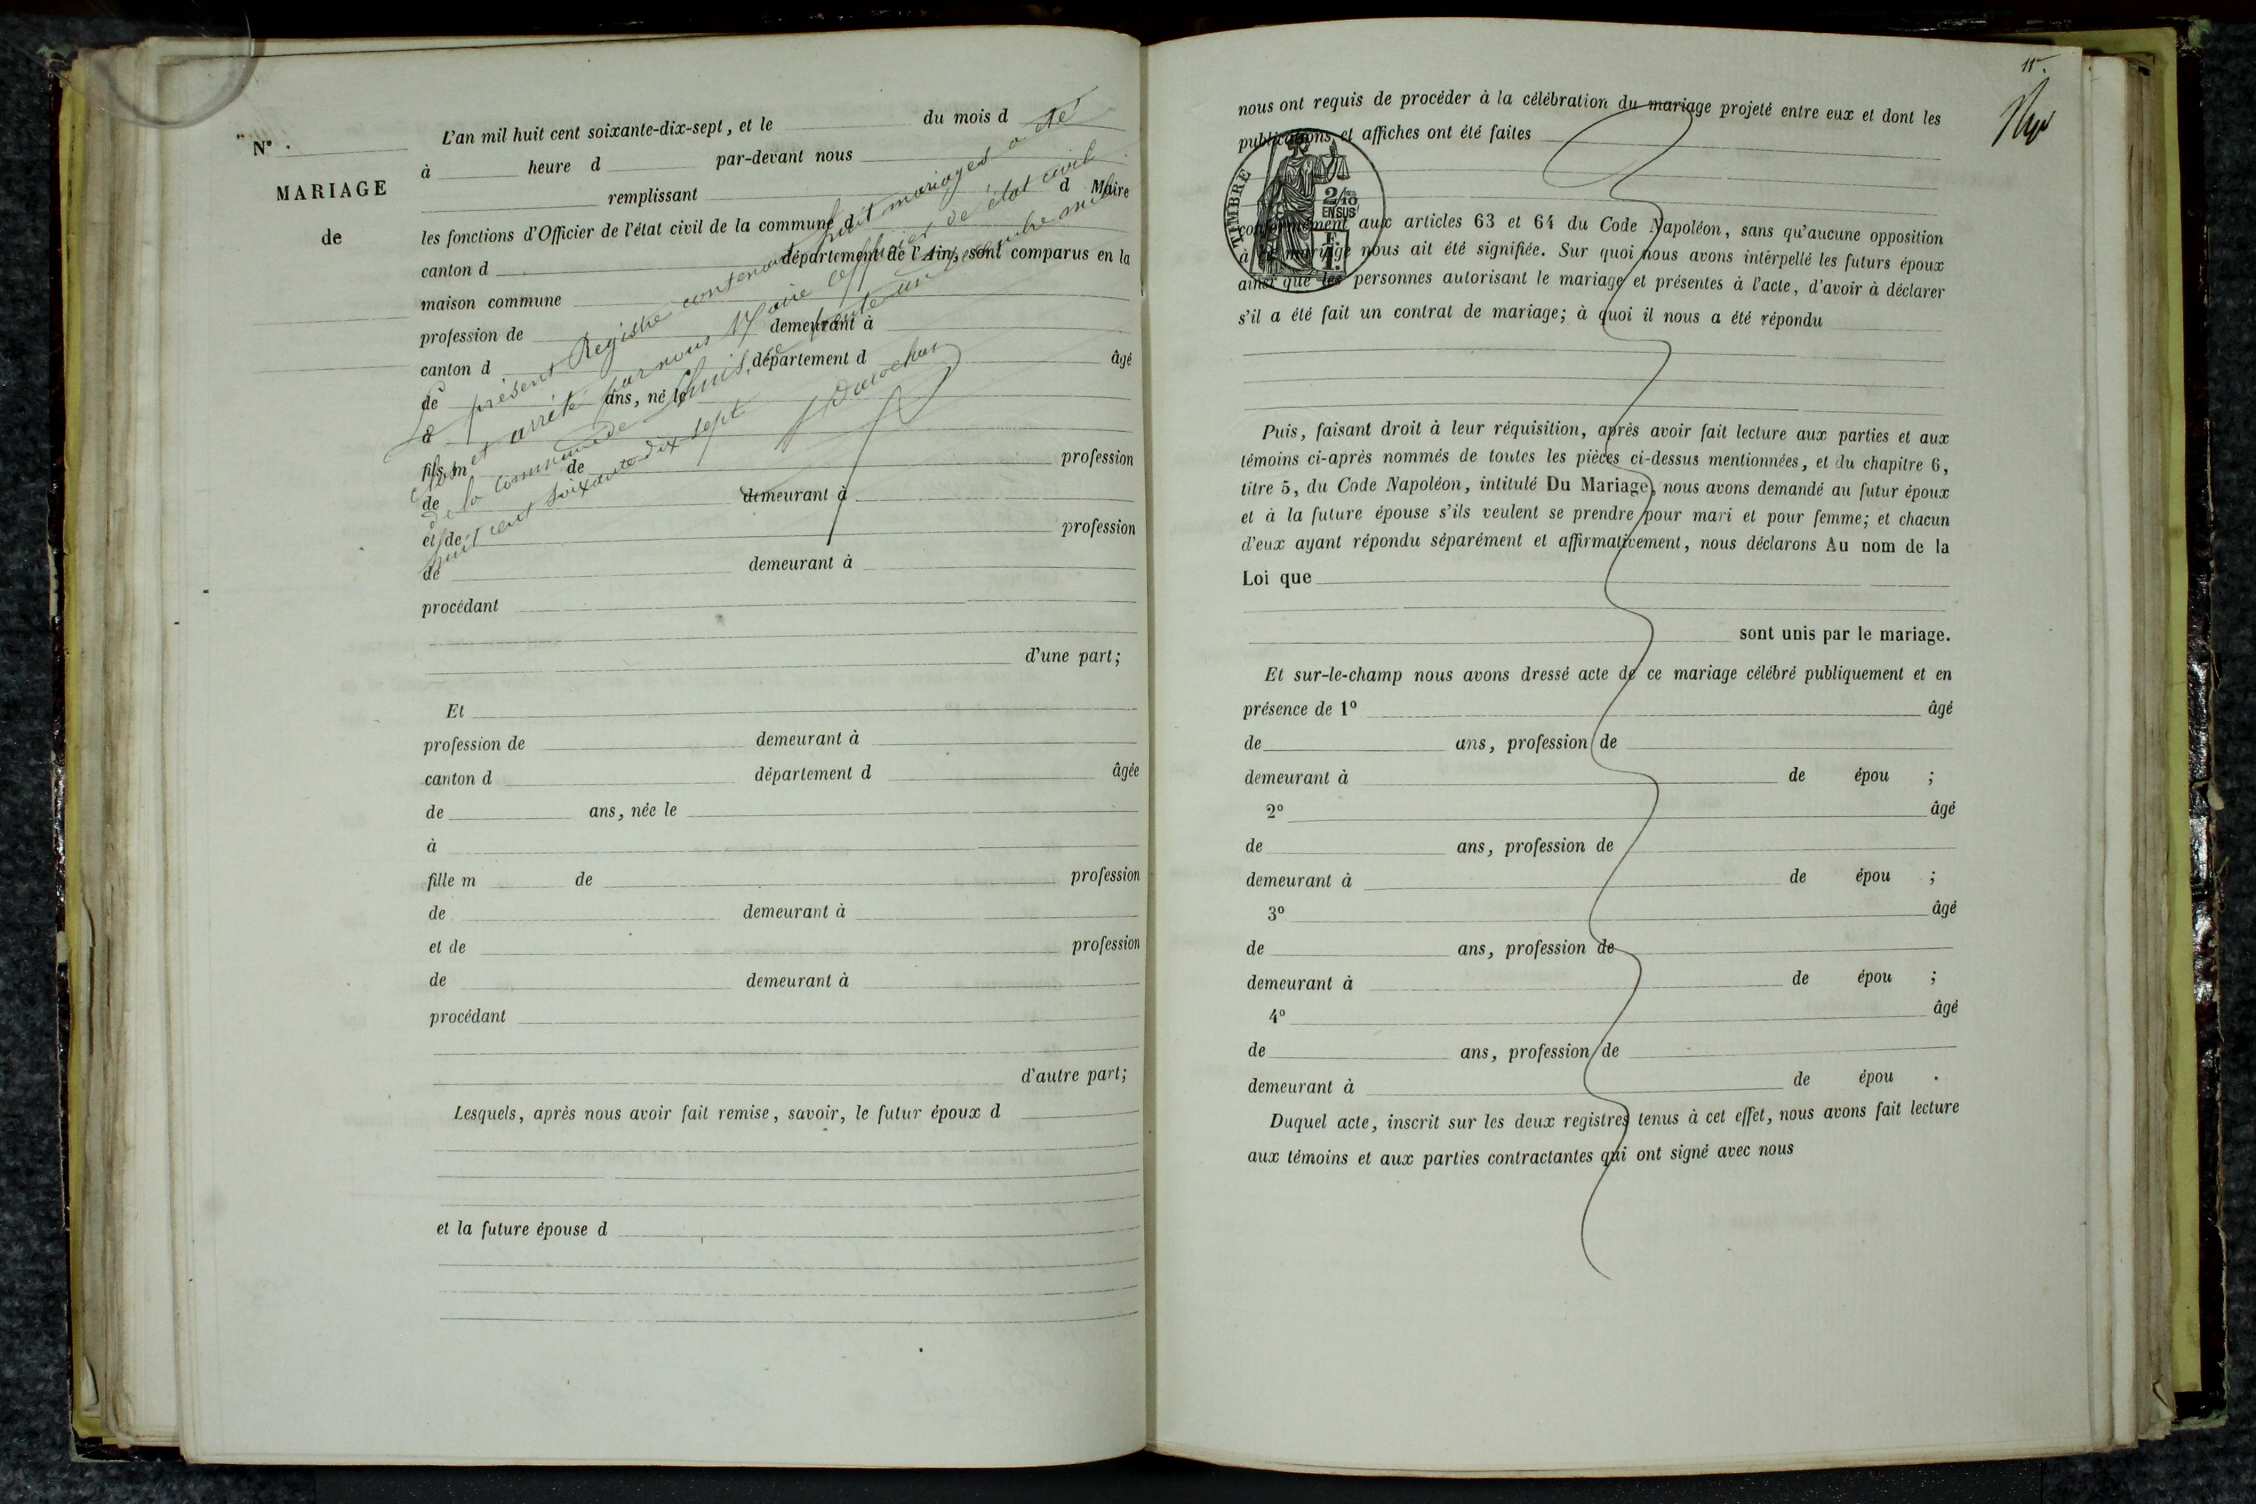 N° .
MARIAGE
de
L'an mil huit cent soixante-dix-sept, et le du mois d
à heure d par-devant nous
remplissant d Maire
les fonctions d'Officier de l'état civil de la commune d
canton d département de l'Ain, sont comparus en la
maison commune
profession de demeurant à
canton d département d âgé
de ans, né le
à
fils m de profession
de demeurant à
et de profession
de demeurant à
procédant
d'une part;
Le présent Registre contenant huit mariages a été
clos et arrêté par nous Maire officier de l'état civil
de la commune de le trente un décembre mil
huit cent soixante dix sept
Et
profession de demeurant à
canton d département d âgée
de ans, née le
à
fille m de profession
de demeurant à
et de profession
de demeurant à
procédant
d'autre part;
Lesquels, après nous avoir fait remise, savoir, le futur époux d
et la future épouse d
11.
nous ont requis de procéder à la célébration du mariage projeté entre eux et dont les
publications et affiches ont été faites
TIMBRE
2/10
EN SUS
1 F.
conformément aux articles 63 et 64 du Code Napoléon, sans qu'aucune opposition
à ce mariage nous ait été signifiée. Sur quoi nous avons interpellé les futurs époux
ainsi que les personnes autorisant le mariage et présentes à l'acte, d'avoir à déclarer
s'il a été fait un contrat de mariage; à quoi il nous a été répondu
Puis, faisant droit à leur réquisition, après avoir fait lecture aux parties et aux
témoins ci-après nommés de toutes les pièces ci-dessus mentionnées, et du chapitre 6,
titre 5, du Code Napoléon, intitulé Du Mariage, nous avons demandé au futur époux
et à la future épouse s'ils veulent se prendre pour mari et pour femme; et chacun
d'eux ayant répondu séparément et affirmativement, nous déclarons Au nom de la
Loi que
sont unis par le mariage.
Et sur-le-champ nous avons dressé acte de ce mariage célébré publiquement et en
présence de 1° âgé
de ans, profession de
demeurant à de épou ;
2° âgé
de ans, profession de
demeurant à de épou ;
3° âgé
de ans, profession de
demeurant à de épou ;
4° âgé
de ans, profession de
demeurant à de épou .
Duquel acte, inscrit sur les deux registres tenus à cet effet, nous avons fait lecture
aux témoins et aux parties contractantes qui ont signé avec nous